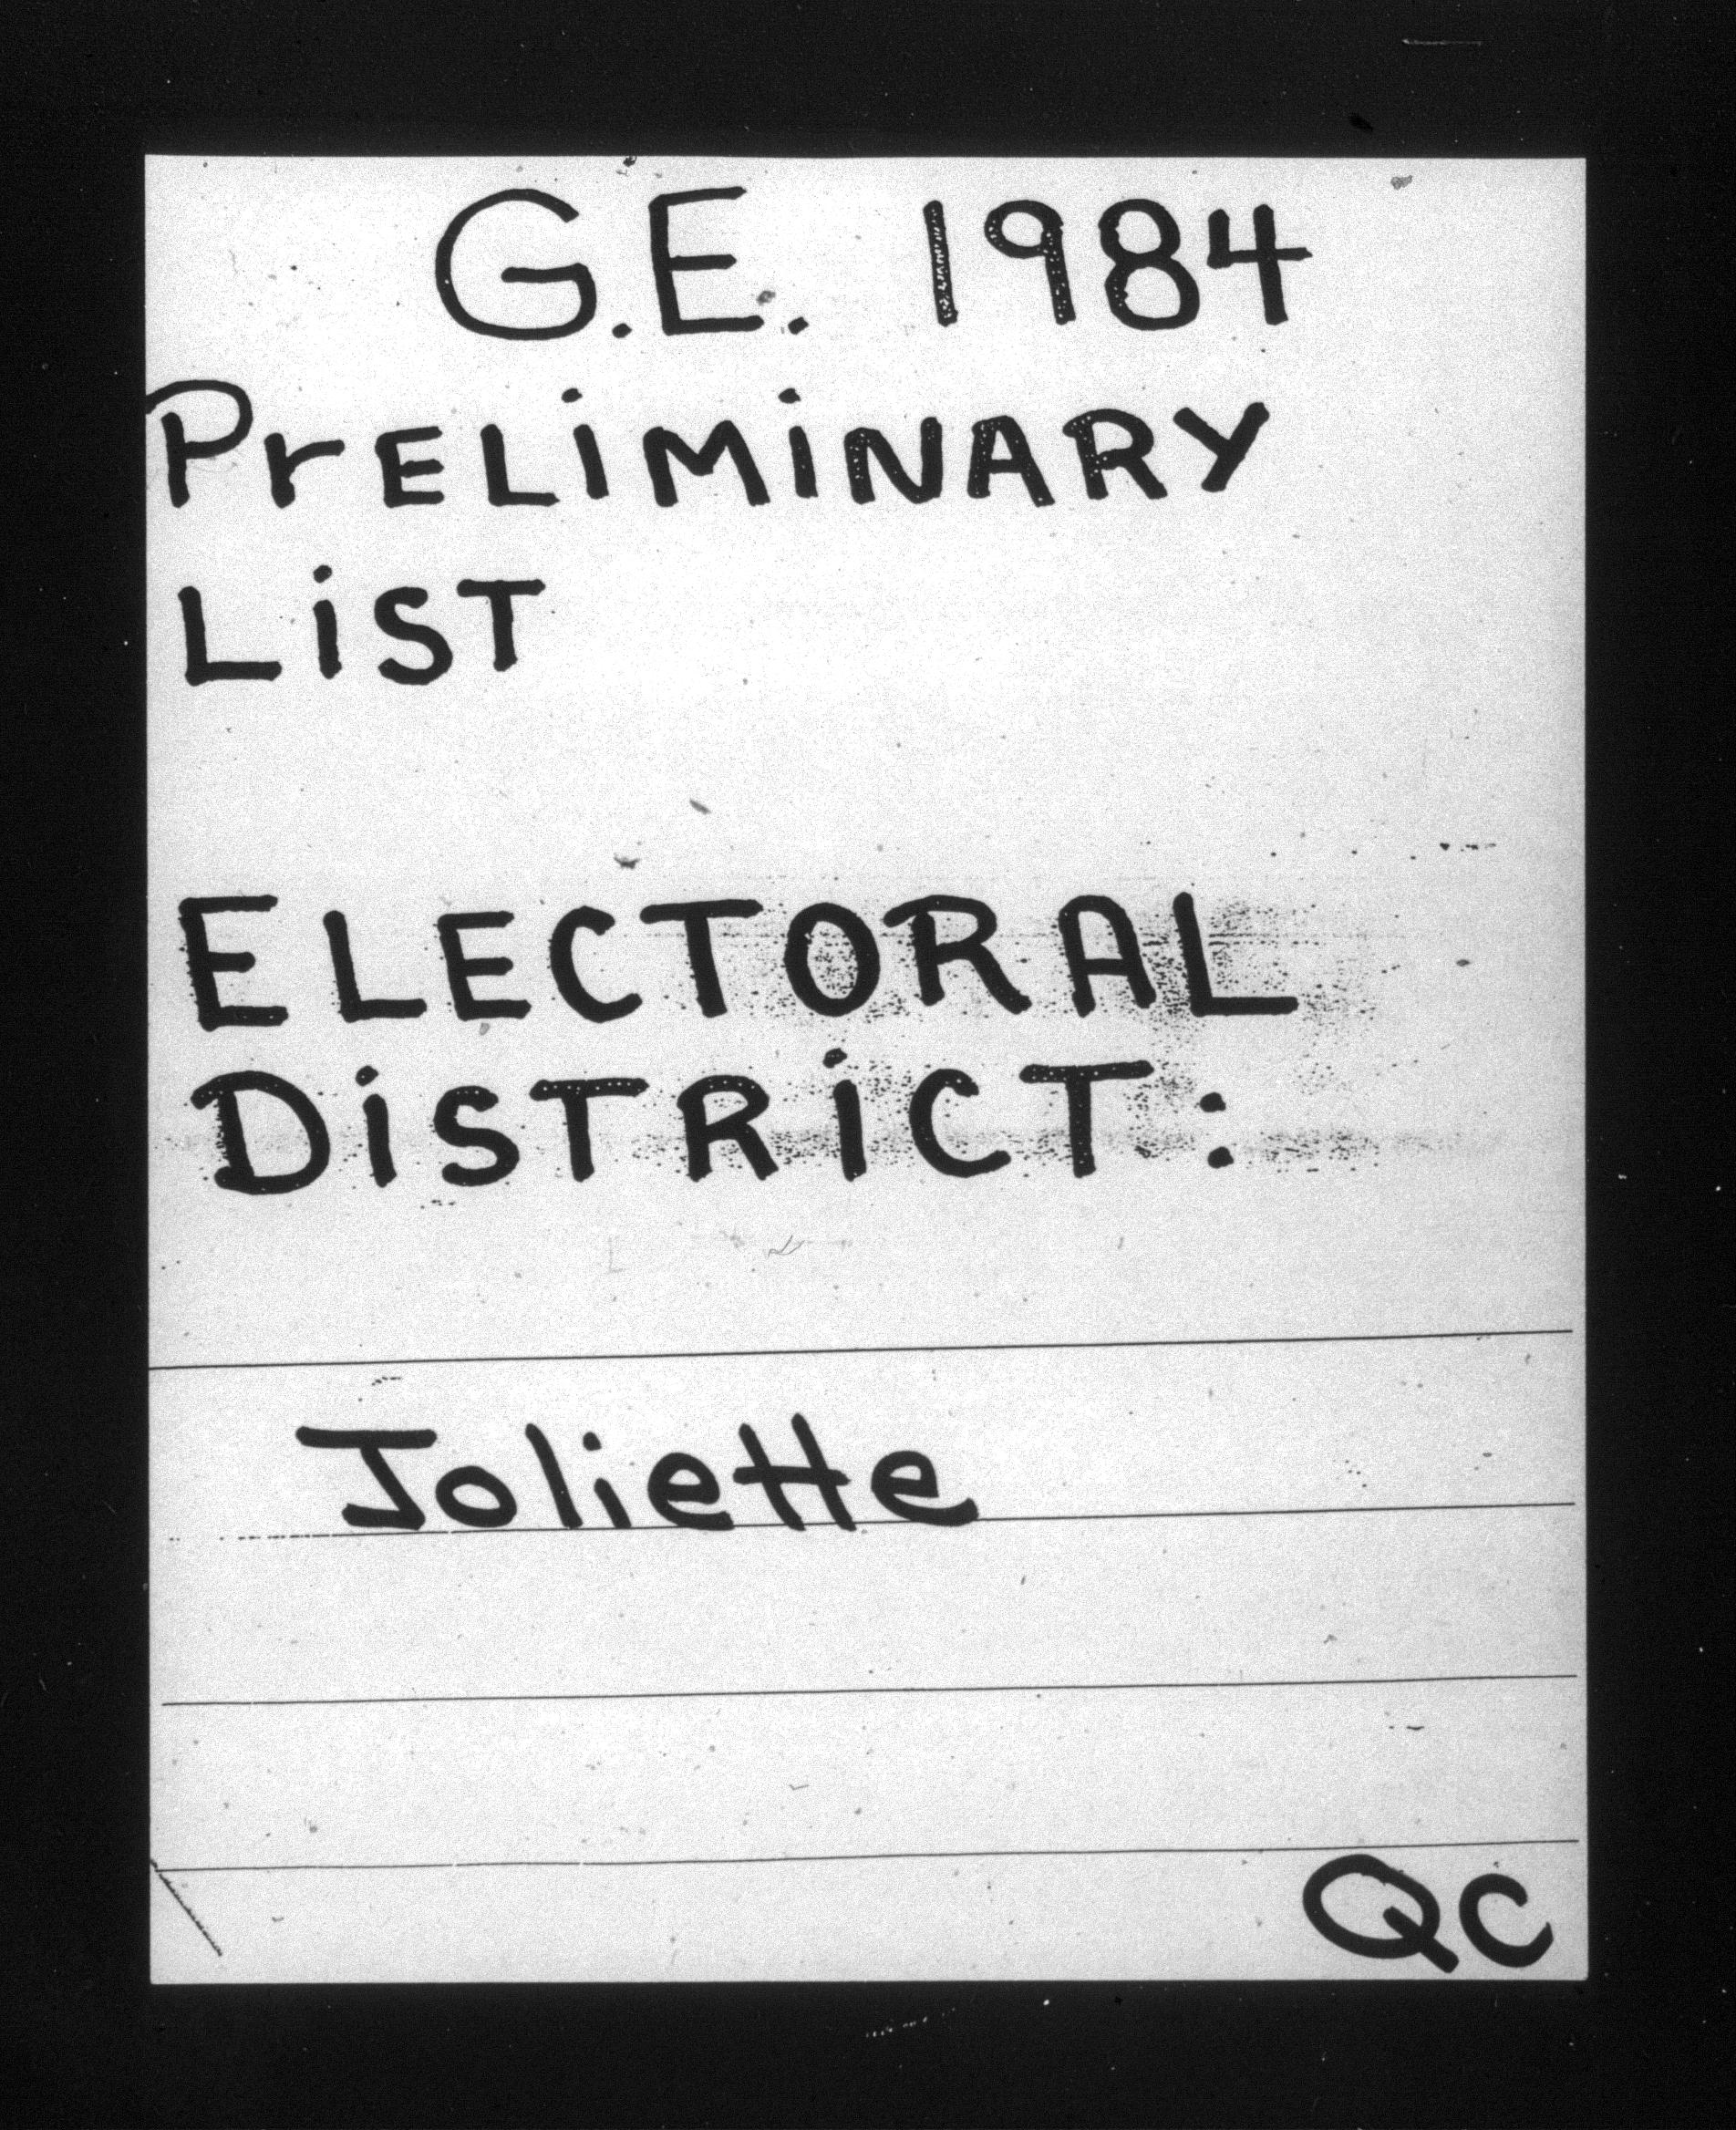 G.E. 1984
PrELiMiNARY
LiST
ELECTORAL
DiSTRiCT:
Joliette
QC